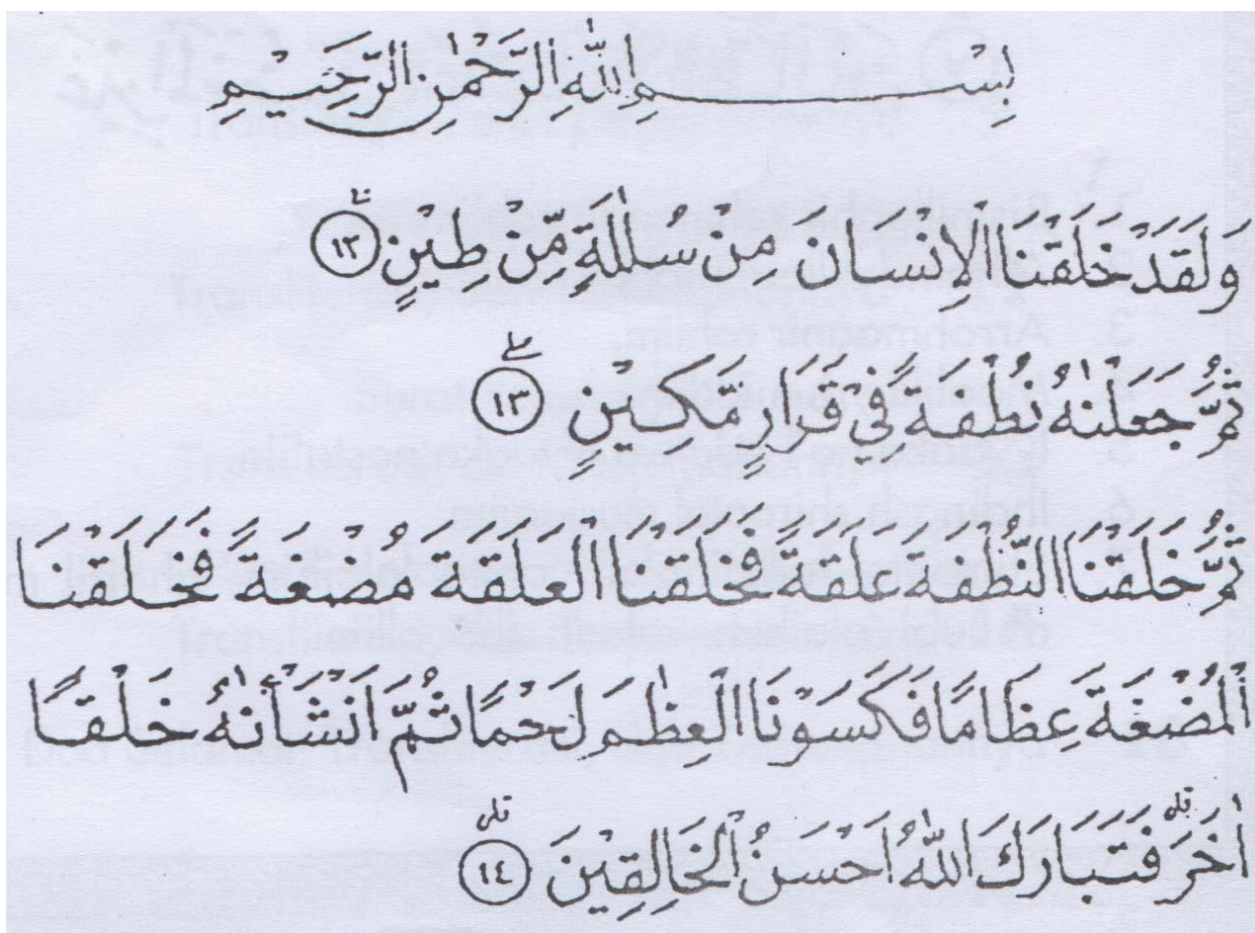 بِسْمِ اللّٰهِ الرَّحْمٰنِ الرَّحِيْمِ
وَلَقَدْ خَلَقْنَا الْاِنْسَانَ مِنْ سُلٰلَةٍ مِّنْ طِيْنٍ ١٢
ثُمَّ جَعَلْنٰهُ نُطْفَةً فِيْ قَرَارٍ مَّكِيْنٍ ١٣
ثُمَّ خَلَقْنَا النُّطْفَةَ عَلَقَةً فَخَلَقْنَا الْعَلَقَةَ مُضْغَةً فَخَلَقْنَا
الْمُضْغَةَ عِظَامًا فَكَسَوْنَا الْعِظٰمَ لَحْمًا ثُمَّ اَنْشَأْنٰهُ خَلْقًا
اٰخَرَ ۗ فَتَبَارَكَ اللّٰهُ اَحْسَنُ الْخَالِقِيْنَ ١٤
3. Arronmaanir rohiim.